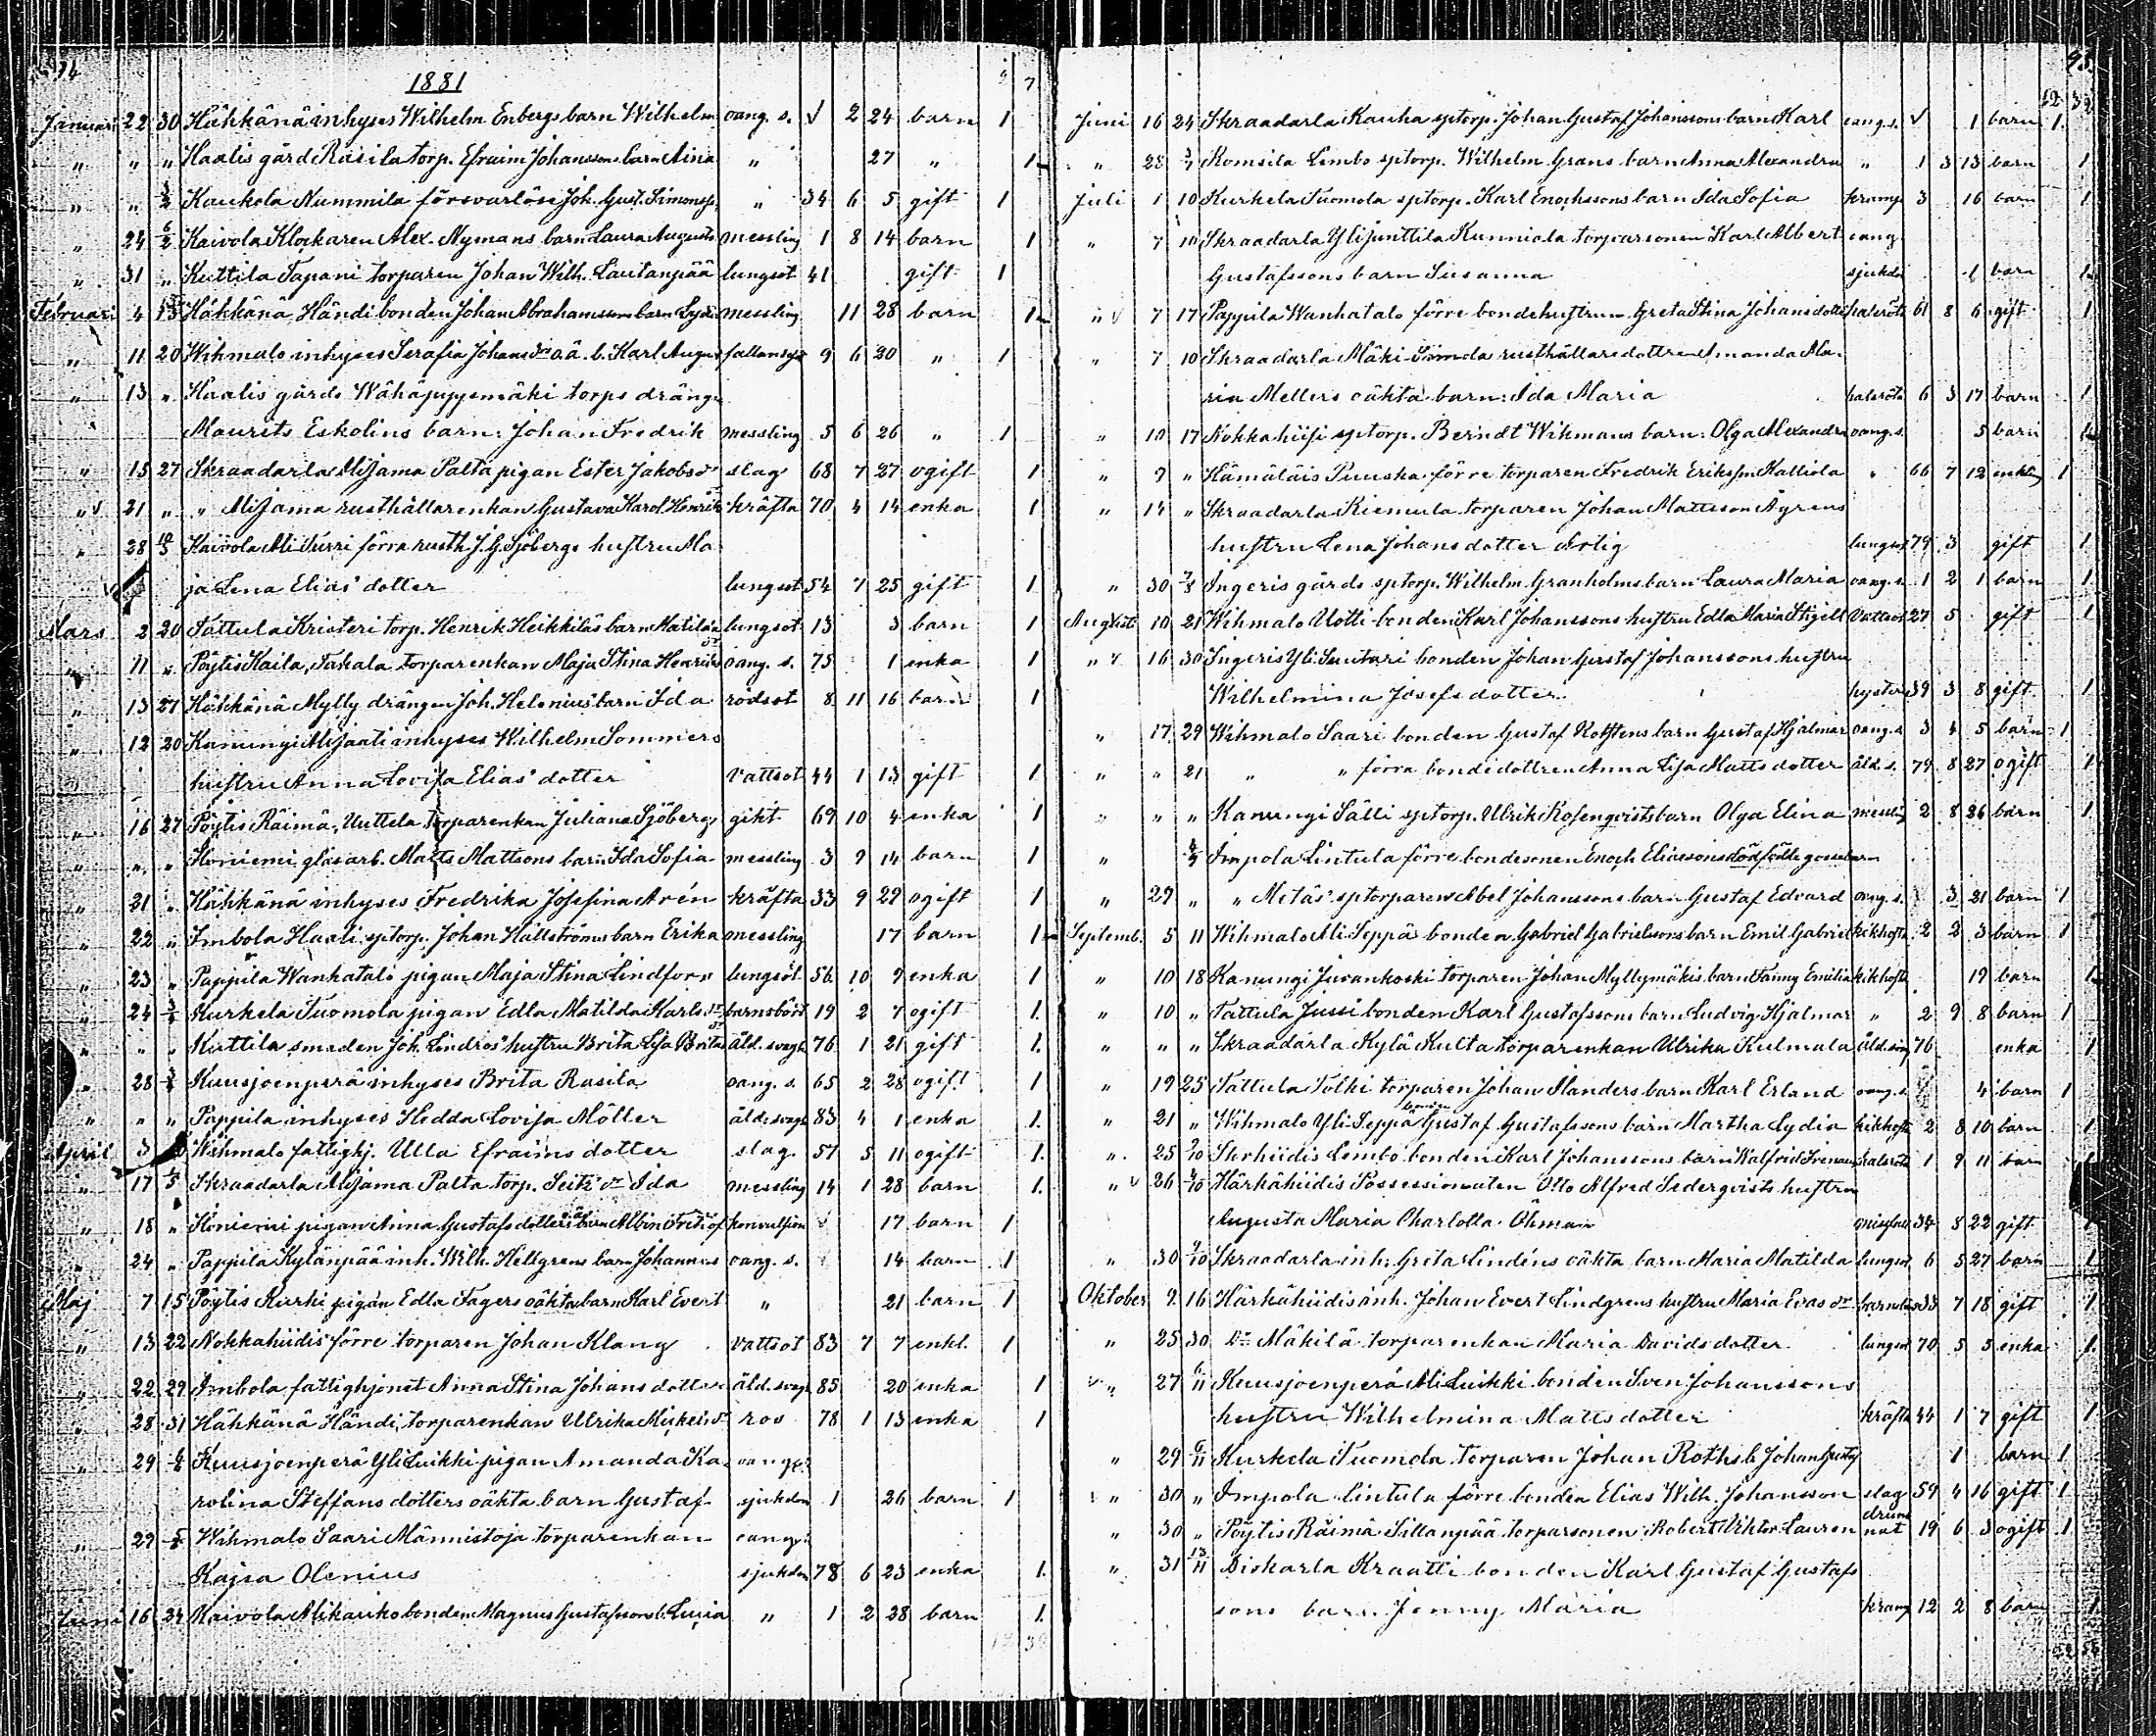 94
1881
Januari 22 30 Hähkänä inhyses Wilhelm Enbergs barn Wilhelm oang. s. √ 2 24 barn 1
" " " Haalis gård Rasila torp. Efraim Johanssons barn Aina " 27 " 1
" " 3/2 Kaukola Nummila försvarlöse Joh. Gust. Simonss. " 34 6 5 gift 1
" 24 6/2 Kaivola Klockaren Alex. Nymans barn Laura Augusta messling 1 8 14 barn 1
" 31 " Kuttila Tapani torparen Johan Wilh. Lautanpää lungsot 41 gift 1
Februari 4 13 Hähkänä Händi bonden Johan Abrahamssons barn Lydia messling 11 28 barn 1
" 11 20 Wihmalo inhyses Serafia Johansdr o.ä. b. Karl August fallandsj. 9 6 20 " 1
" 13 " Haalis gårds Wähäjuppemäki torps dräng
Maurits Eskolins barn: Johan Fredrik messling 5 6 26 " 1
" 15 27 Skraadarla Alijama Palta pigan Ester Jakobsdr slag 68 7 27 ogift 1
" √ 21 " " Alijama rusthållarenkan Gustava Karol. Henriksdr kräfta 70 4 14 enka 1
" 28 10/3 Kaivola Ali Turri förra rusth. J. G. Sjöbergs hustru Ma
ja Lena Elias dotter lungsot 54 7 25 gift 1
Mars 2 20 Tattula Kristeri torp. Henrik Heikkiläs barn Matilda lungsot 13 3 barn 1
" 11 " Pöytis Kaila, Takala torparenkan Maja Stina Henriksdr oang. s. 75 1 enka 1
" 13 27 Hähkänä Mylly drängen Joh. Helenius' barn Ida rödsot 8 11 16 barn 1
" 12 20 Kanungi Alijaati inhyses Wilhelm Sommers
hustru Anna Lovisa Elias' dotter Vattsot 44 1 13 gift 1
" 16 27 Pöytis Räimä, Uuttela torparenkan Juliana Sjöberg gikt 69 10 4 enka 1
" " " Honiemi glasarb. Matts Mattsons barn Ida Sofia messling 3 9 14 barn 1
" 21 " Hähkänä inhyses Fredrika Josefina Arén kräfta 33 9 29 ogift 1
" 22 " Imbola Haali sptorp. Johan Hällströms barn Erika messling 17 barn 1
" 23 " Pappila Wanhatalo pigan Maja Stina Lindfors lungsot 56 10 9 enka 1
" 24 3/4 Kurkela Tuomola pigan Edla Matilda Karlsdr barnsbörd 19 2 7 ogift 1
" " " Kuttila smeden Joh. Lindros' hustru Brita Lisa Britasdr äld. svagh. 76 1 21 gift 1
" 28 3/4 Kuusjoenperä inhyses Brita Rasila oang. s. 65 2 28 ogift 1
" " " Pappila inhyses Hedda Lovisa Möller äld. svagh. 83 4 1 enka 1
April 3 Wihmalo fattighj. Ulla Efraims dotter slag. 57 5 11 ogift 1
" 17 1/5 Skraadarla Alijama Palta torp. Seits' dr Ida messling 14 1 28 barn 1
" 18 " Honiemi pigan Anna Gustafsdotters o.ä. barn Albin Fritiof konvulsion √ 17 barn 1
" 24 " Pappila Kylänpää inh. Wilh. Hellgrens barn Johannes oang. s. 14 barn 1
Maj 7 15 Pöytis Kurki pigan Edla Fagers oäkta barn Karl Evert " 21 barn 1
" 13 22 Nokkahiidis förre torparen Johan Klang Vattsot 83 7 7 enkl. 1
" 22 29 Imbola fattighjonet Anna Stina Johans dotter äld. svagh. 85 20 enka 1
" 28 31 Hähkänä Händi, torparenkan Ulrika Mickelsdr ros 78 1 13 enka 1
" 29 Kuusjoenperä Yli Luikki pigan Amanda Ka oang.
rolina Steffans dotters oäkta barn Gustaf sjukdom 1 26 barn 1
" 29 5/6 Wihmalo Saari Männistoja torparenkan oang.
Kajsa Olenius sjukdom 78 6 23 enka 1
Juni 16 24 Kaivola Alikauko bonden Magnus Gustafssons b. Lucia " 1 2 28 barn 1
95.
Juni 16 24 Skraadarla Kauha sptorp. Johan Gustaf Johanssons barn Karl oang. s. √ 1 barn 1
" 28 3/7 Komsila Lembo sptorp. Wilhelm Grans barn Anna Alexandra " 1 3 13 barn 1
Juli 1 10 Kurkela Tuomola sptorp. Karl Enochssons barn Ida Sofia kramp 3 16 barn 1
" 7 10 Skraadarla Ylijunttila Kunniala torparsonen Karl Albert oang.
Gustafssons barn Susanna sjukdo 1 barn 1
" √ 7 17 Pappila Wanhatalo förre bondehustrun Greta Stina Johansdotter halsröta 61 8 6 gift 1
" 7 10 Skraadarla Mäki-Simola rusthållaredottren Amanda Ma
ria Mellers oäkta barn: Ida Maria halsröta 6 3 17 barn 1
" 10 17 Nokkahiisi sptorp. Berndt Wikmans barn: Olga Alexandra oang. s. 5 barn 1
" 9 " Hämäläis Puuska förre torparen Fredrik Eriksson Kalliola " 66 7 12 enkling 1
" 14 " Skraadarla Riemula torparen Johan Mattsson Ågrens
hustru Lena Johans dotter Ärlig lungsot 79 3 gift 1
" 30 7/8 Ingeris gårds sptorp. Wilhelm Granholms barn Laura Maria oang. s. 1 2 1 barn 1
Augusti 10 21 Wihmalo Uotti bonden Karl Johanssons hustru Edla Maria Stigell Vattsot 27 5 gift 1
" √ 16 30 Ingeris Yli Suutari bonden Johan Gustaf Johanssons hustru
Wilhelmina Josefs dotter hysteri 39 3 8 gift 1
" 17 29 Wihmalo Saari bonden Gustaf Rothstens barn Gustaf Hjalmar oang. s. 3 4 5 barn 1
" " 21 " " förra bondedottren Anna Lisa Matts dotter äld. s. 79 8 27 ogift 1
" " " Kanungi Sälli sptorp. Ulrik Rosenqvists barn Olga Elina messling 2 8 26 barn 1
" 4/9 Impola Lintula förre bondesonen Enoch Eliassons dödfödde gossebarn
" 29 " " Metäs' sptorparen Abel Johanssons barn Gustaf Edvard oang. s. 3 21 barn 1
Septemb. 5 11 Wihmalo Ali Seppä bonden Gabriel Gabrielssons barn Emil Gabriel kikhosta 2 2 3 barn 1
" 10 18 Kanungi Juvankoski torparen Johan Myllymäkis barn Fanny Emilia kikhosta 19 barn 1
" 10 " Tattula Jussi bonden Karl Gustafssons barn Ludvig Hjalmar " 2 9 8 barn 1
" " " Skraadarla Kylä Kulta torparenkan Ulrika Kulmala äld. svagh. 76 enka 1
" 19 25 Tattula Tolki torparen Johan Ilanders barn Karl Erland oang. s. 4 barn 1
" 21 " Wihmalo Yli Seppä bonden Gustaf Gustafssons barn Martha Lydia kikhosta 2 8 10 barn 1
" 25 2/10 Lembo bonden Karl Johanssons barn Walfrid Ireneus halsröta 1 9 11 barn 1
" √ 26 4/10 Härkähiidis Possessionaten Otto Alfred Sederqvists hustru
Augusta Maria Charlotta Öhman missfall 34 8 22 gift 1
" 30 9/10 Skraadarla inh. Greta Lindéns oäkta barn Maria Matilda lungsot 6 5 27 barn 1
Oktober 9 16 Härkähiidis inh. Johan Evert Lindgrens hustru Maria Evas dr barnsb. 33 7 18 gift 1
" 25 30 Do Mäkilä torparenkan Maria Davids dotter lungsot 70 5 5 enka 1
" 27 6/11 Kuusjoenperä Ali Luikki bonden Sven Johanssons
hustru Wilhelmina Matts dotter kräfta 44 1 7 gift 1
" 29 6/11 Kurkela Tuomola torparen Johan Roths b. Johan Gustaf 1 barn 1
" 30 " Impola Lintula förre bonden Elias Wilh. Johansson slag 59 4 16 gift 1
" 30 " Pöytis Räimä Sillanpää torparsonen Robert Viktor Lauren drunknat 19 6 3 ogift 1
" 31 13/11 Diskarla Kraatti bonden Karl Gustaf Gustafs
sons barn Jenny Maria kramp 12 2 8 barn 1